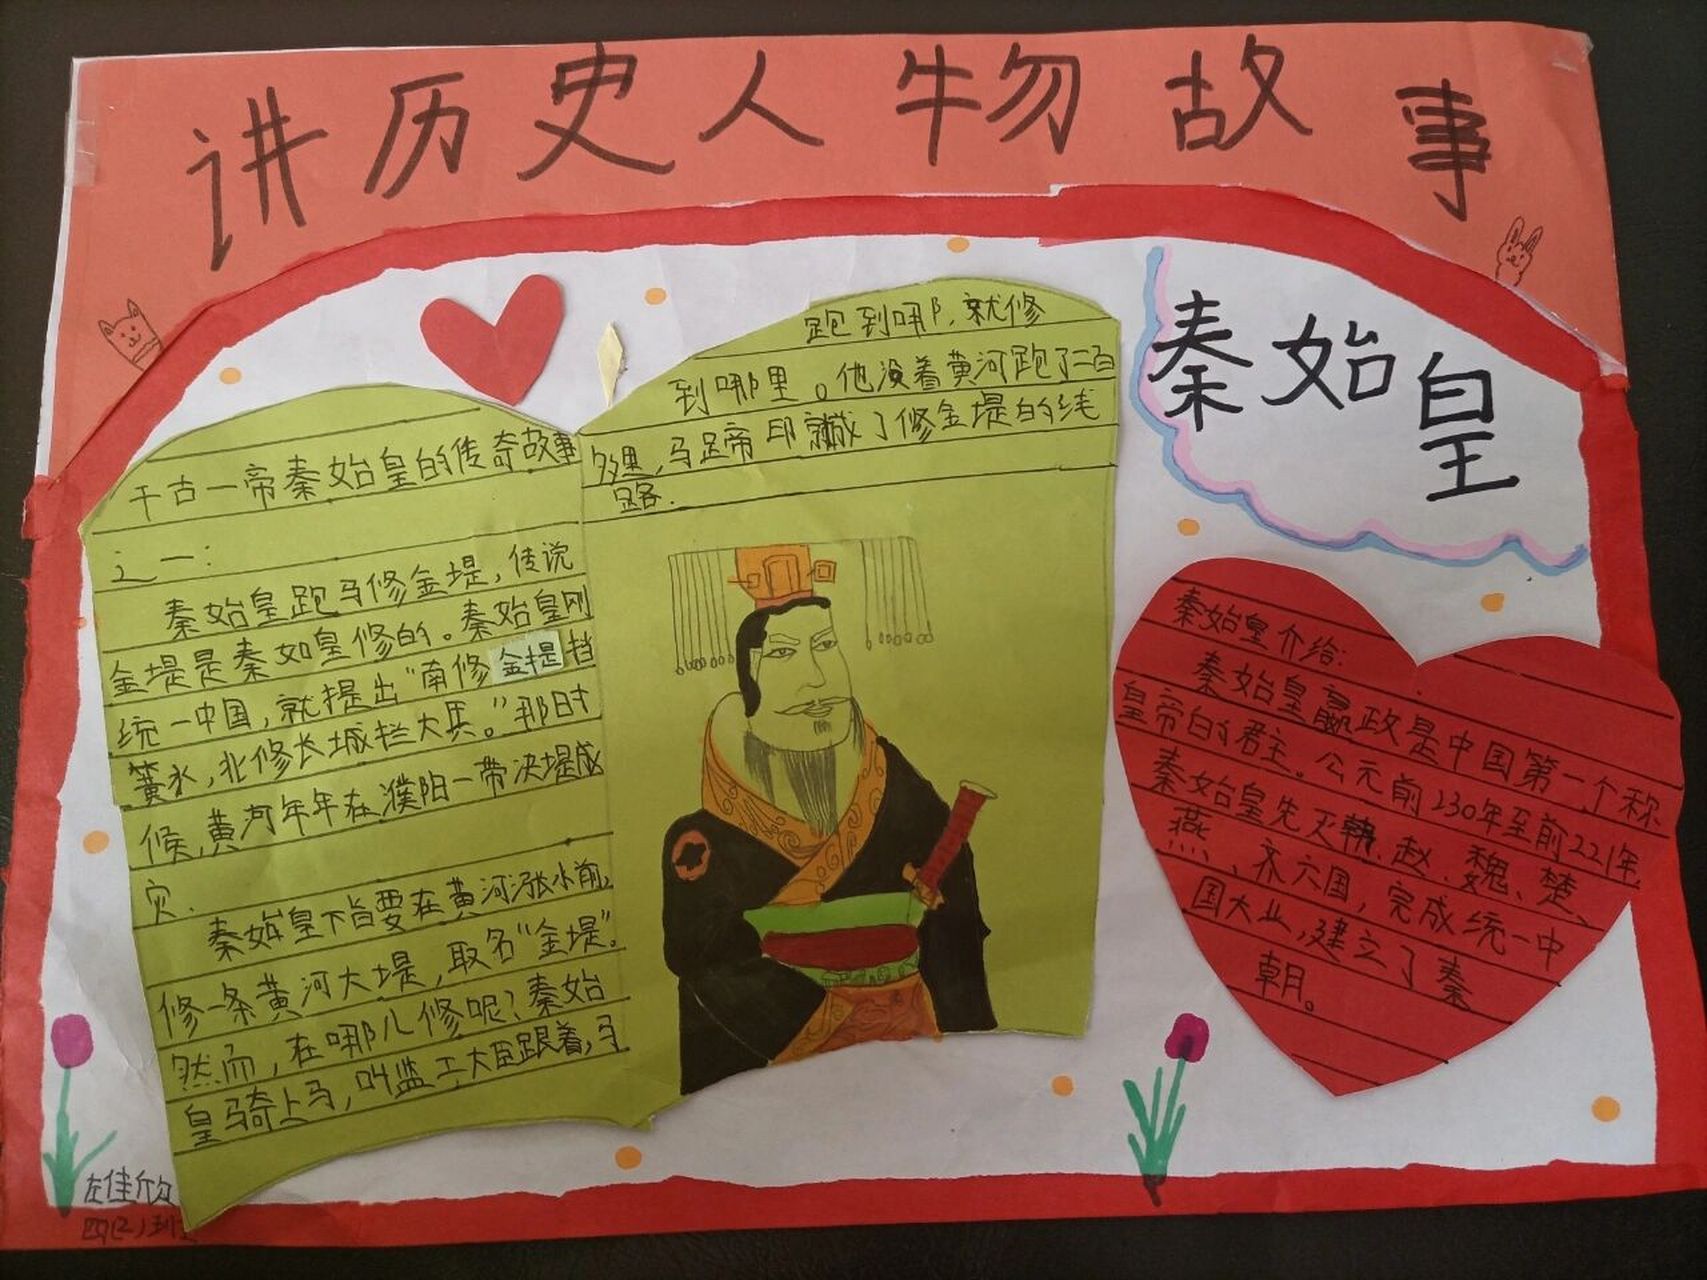 讲历史人物故事
秦始皇
千古一帝秦始皇的传奇故事
之一:
秦始皇跑马修金堤,传说
金堤是秦如皇修的。秦始皇刚
统一中国,就提出“南修金提挡
黄水,北修长城拦大兵。”那时
候,黄河年年在濮阳一带决堤成
灾.
秦始皇下旨要在黄河涨水前,
修一条黄河大堤,取名“金堤”。
然而,在哪儿修呢?秦始
皇骑上马,叫监工大臣跟着,马
跑到哪,就修
到哪里。他没着黄河跑了二百
多里,马足帝印就成了修金堤的线
路.
秦始皇介给:
秦始皇嬴政是中国第一个称
皇帝的君主。公元前230年至前221年,
秦始皇先灭韩、赵、魏、楚、
燕、齐六国,完成统一中
国大业,建立了秦
朝。
左佳欣
四(2)班